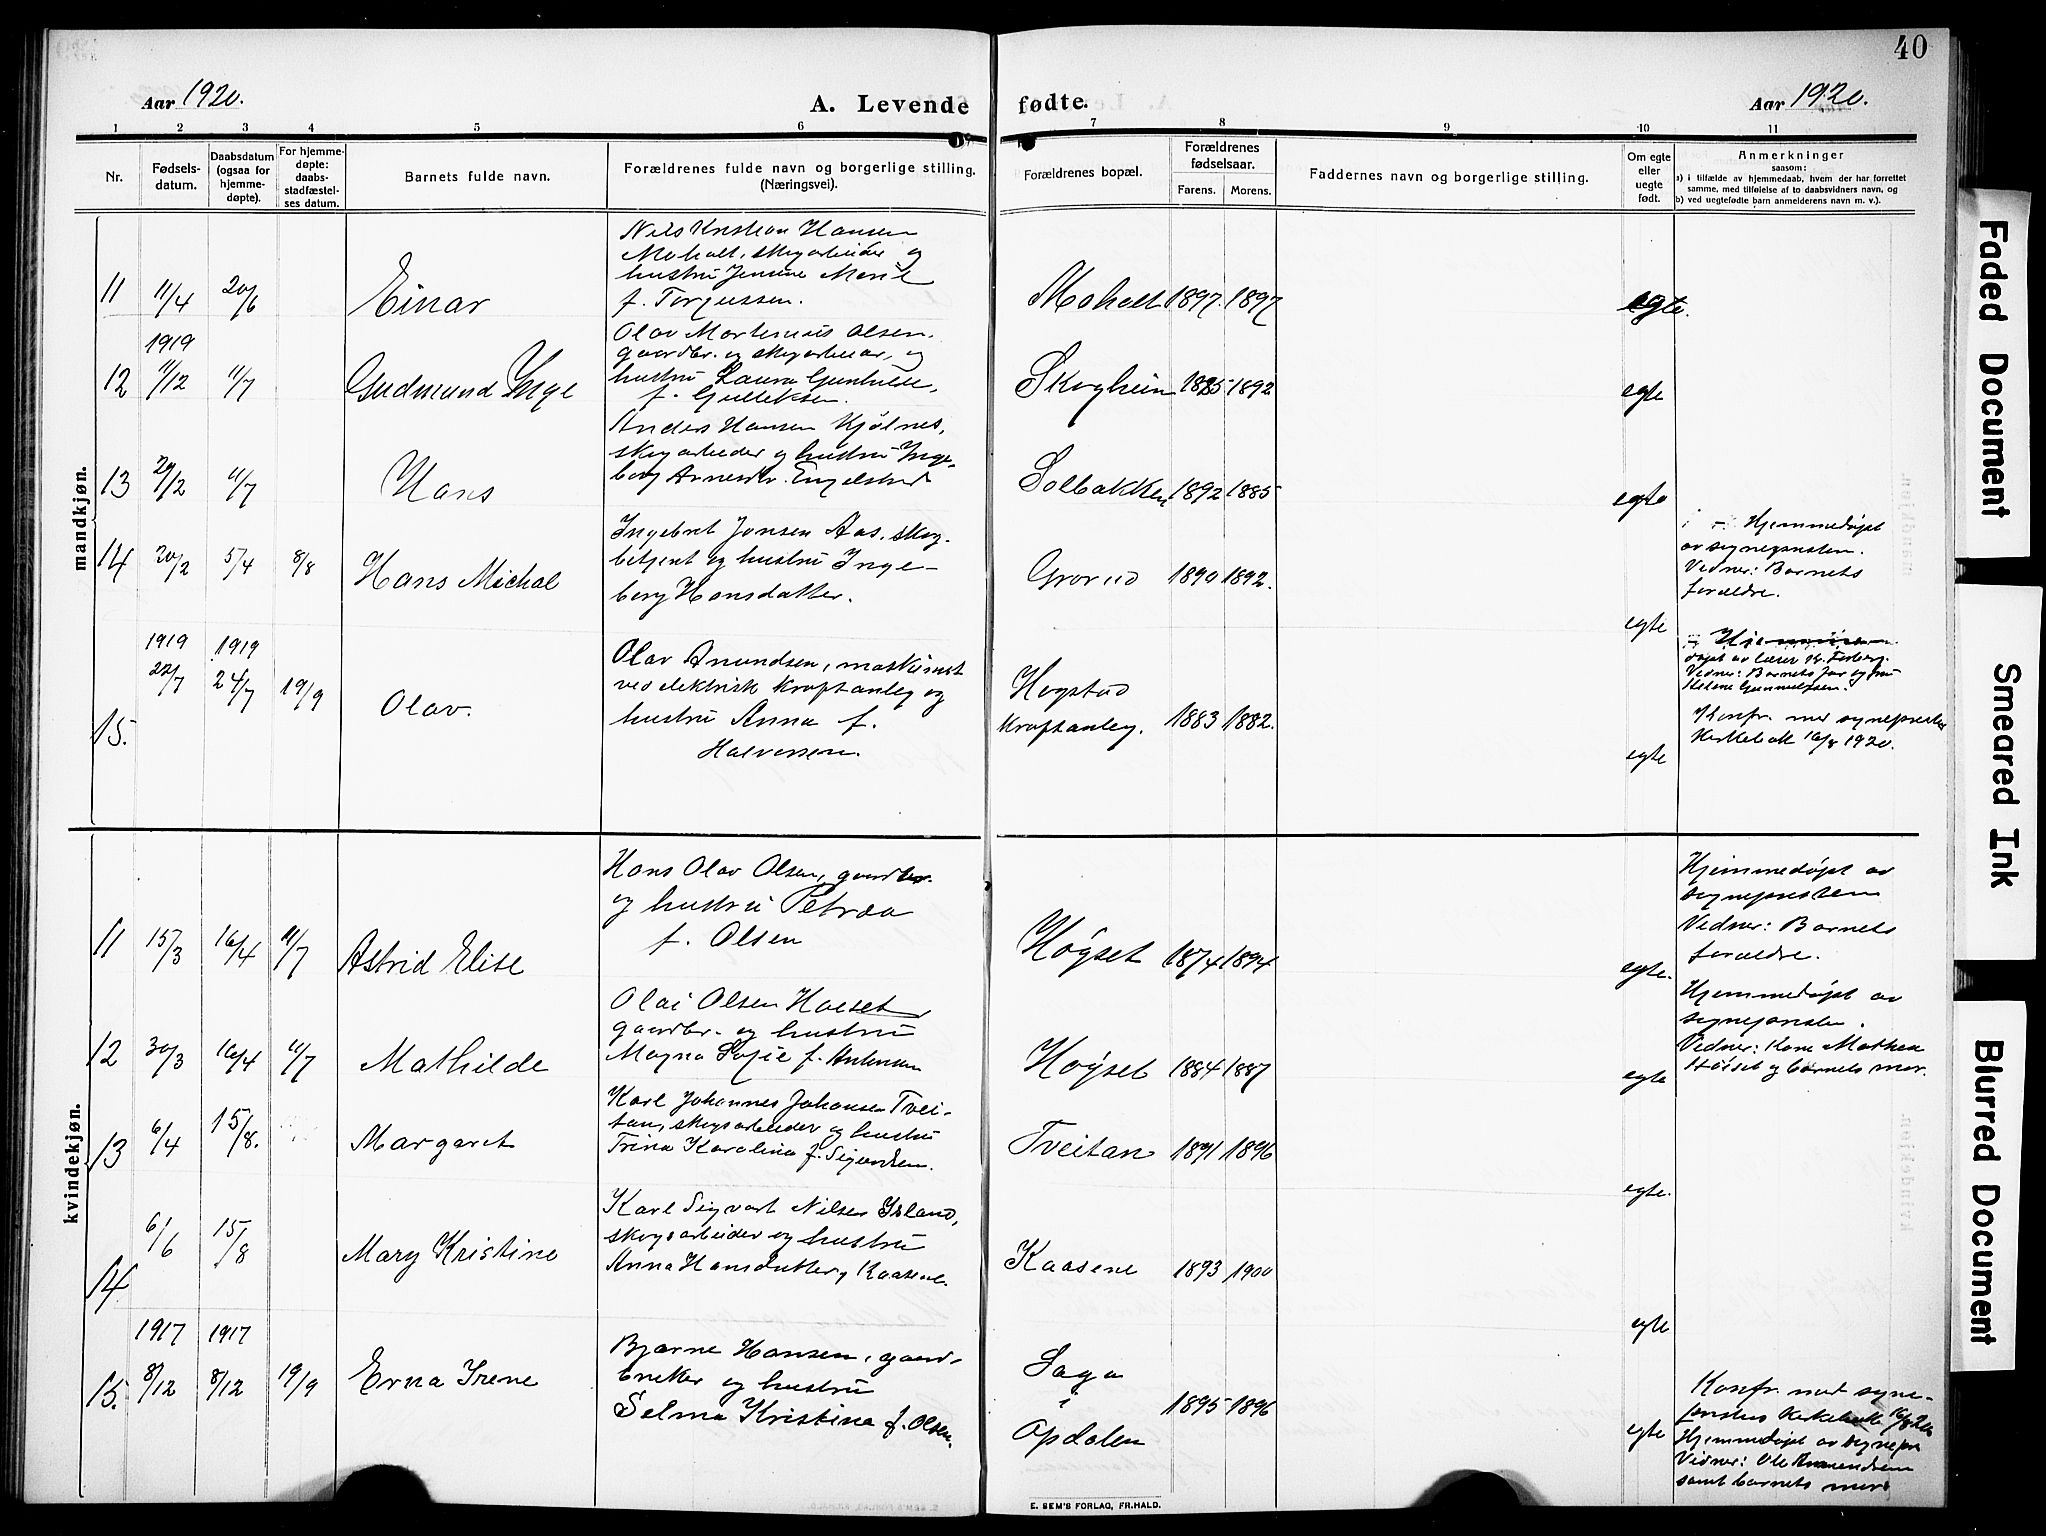 40
Aar 1920.
A. Levende fødte.
Aar 1920.
1 2 3 4 5 6 7 8 9 10 11
Nr.
Fødsels-
datum.
Daabsdatum
(ogsaa for
hjemme-
døpte).
For hjemme-
døpte:
daabs-
stadfæstel-
ses datum.
Barnets fulde navn.
Forældrenes fulde navn og borgerlige stilling.
(Næringsvei).
Forældrenes bopæl.
Forældrenes
fødselsaar.
Farens. Morens.
Faddernes navn og borgerlige stilling.
Om egte
eller
uegte
født.
Anmerkninger
saasom:
a) i tilfælde av hjemmedaab, hvem der har forrettet
samme, med tilføielse af to daabsvidners navn, og
b) ved uegtefødte barn anmelderens navn m. v.).
mandkjøn.
11 11/4 20/6 Einar
Nils Kristian Hansen
Moholt, skogarbeider og
hustru Jensine Marie
f. Torjussen.
Moholt 1897. 1897 egte.
12 1919
11/12 11/7 Gudmund Inge
Olav Martinius Olsen.
gaardbr. og skogarbeider, og
hustru Laura Gunhilde,
f. Gulleksen.
Skogheim 1885 1892 egte
13 29/2 11/7 Hans
Anders Hansen Kjølnes,
skogarbeider og hustru Inge-
borg Arnesdtr. Engelstad
Solbakken 1892 1885 egte
14 20/2 5/4 8/8 Hans Michal
Ingebret Jonsen Aas, skog-
betjent og hustru Inge-
borg Hansdatter.
Grorud 1890 1892. egte
Hjemmedøpt
av sognepresten.
Vidner: Barnets
forældre.
15. 1919 1919
22/7 24/7 19/9 Olav.
Olav Amundsen, maskinist
ved elektrisk kraftanlæg og
hustru Anna f.
Halvorsen.
Hogstad
kraftanlæg. 1883 1882. egte
døpt av lærer
Vidner: Barnets far og fru
Helene Gummelsen.
Konfr. med sogneprester
Kirkebok 16/8 1920.
kvindekjøn.
11 15/3 16/4 11/7 Astrid Elise
Hans Olav Olsen, gaardbr.
og hustru Petrea
f. Olsen
Høgset 1874 1894 egte.
Hjemmedøpt av
sognepresten
Vidner: Barnets
forældre.
12 30/3 16/4 11/7 Mathilde
Olai Olsen Høeset,
gaardbr. og hustru
Magna Sofie f. Antensen
Høgset 1884 1887 egte
Hjemmedøpt av
sognepresten.
Vidner: Kone Mathea
Høiset og barnets mor.
13 6/4 15/8. Margaret
Karl Johannes Johansen Tvei-
tan, skogsarbeider og hustru
Trina Karolina f. Sigurdsen.
Tveitan 1891 1896 egte.
14 6/6 15/8 Mary Kristine
Karl Sigvart Nilsen Island,
skogsarbeider og hustru
Anna Hansdatter, Kaasene.
Kaasene 1893 1900 egte
15. 1917 1917
8/12 8/12 19/9 Erna Irene
Bjarne Hansen, gaard-
bruker og hustru
Selma Kristina f. Olsen.
Saga
i
Opdalen 1895 1896 egte
Konfr. med sogne-
prestens Kirkebok 16/8 20
Hjemmedøpt av sognepr
Vidner: Ole Amundsen
samt barnets mor
E. SEM'S FORLAG, FR.HALD.
Faded Document
Smeared Ink
Blurred Document